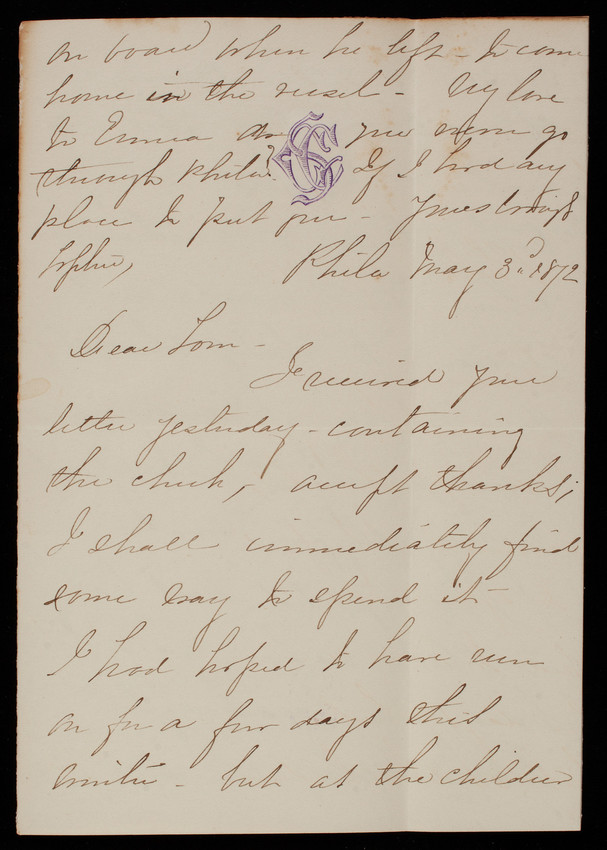 on board when he left - to come
home in the vessel - My love
to Emma do you ever go
through Phila? If I had any
place to put you - Yours
Sophie,
Phila May 3.d 1872
Dear Tom -
I received your
letter yesterday - containing
the check, accept thanks;
I shall immediately find
some way to spend it -
I had hoped to have run
on for a few days this
winter - but as the children